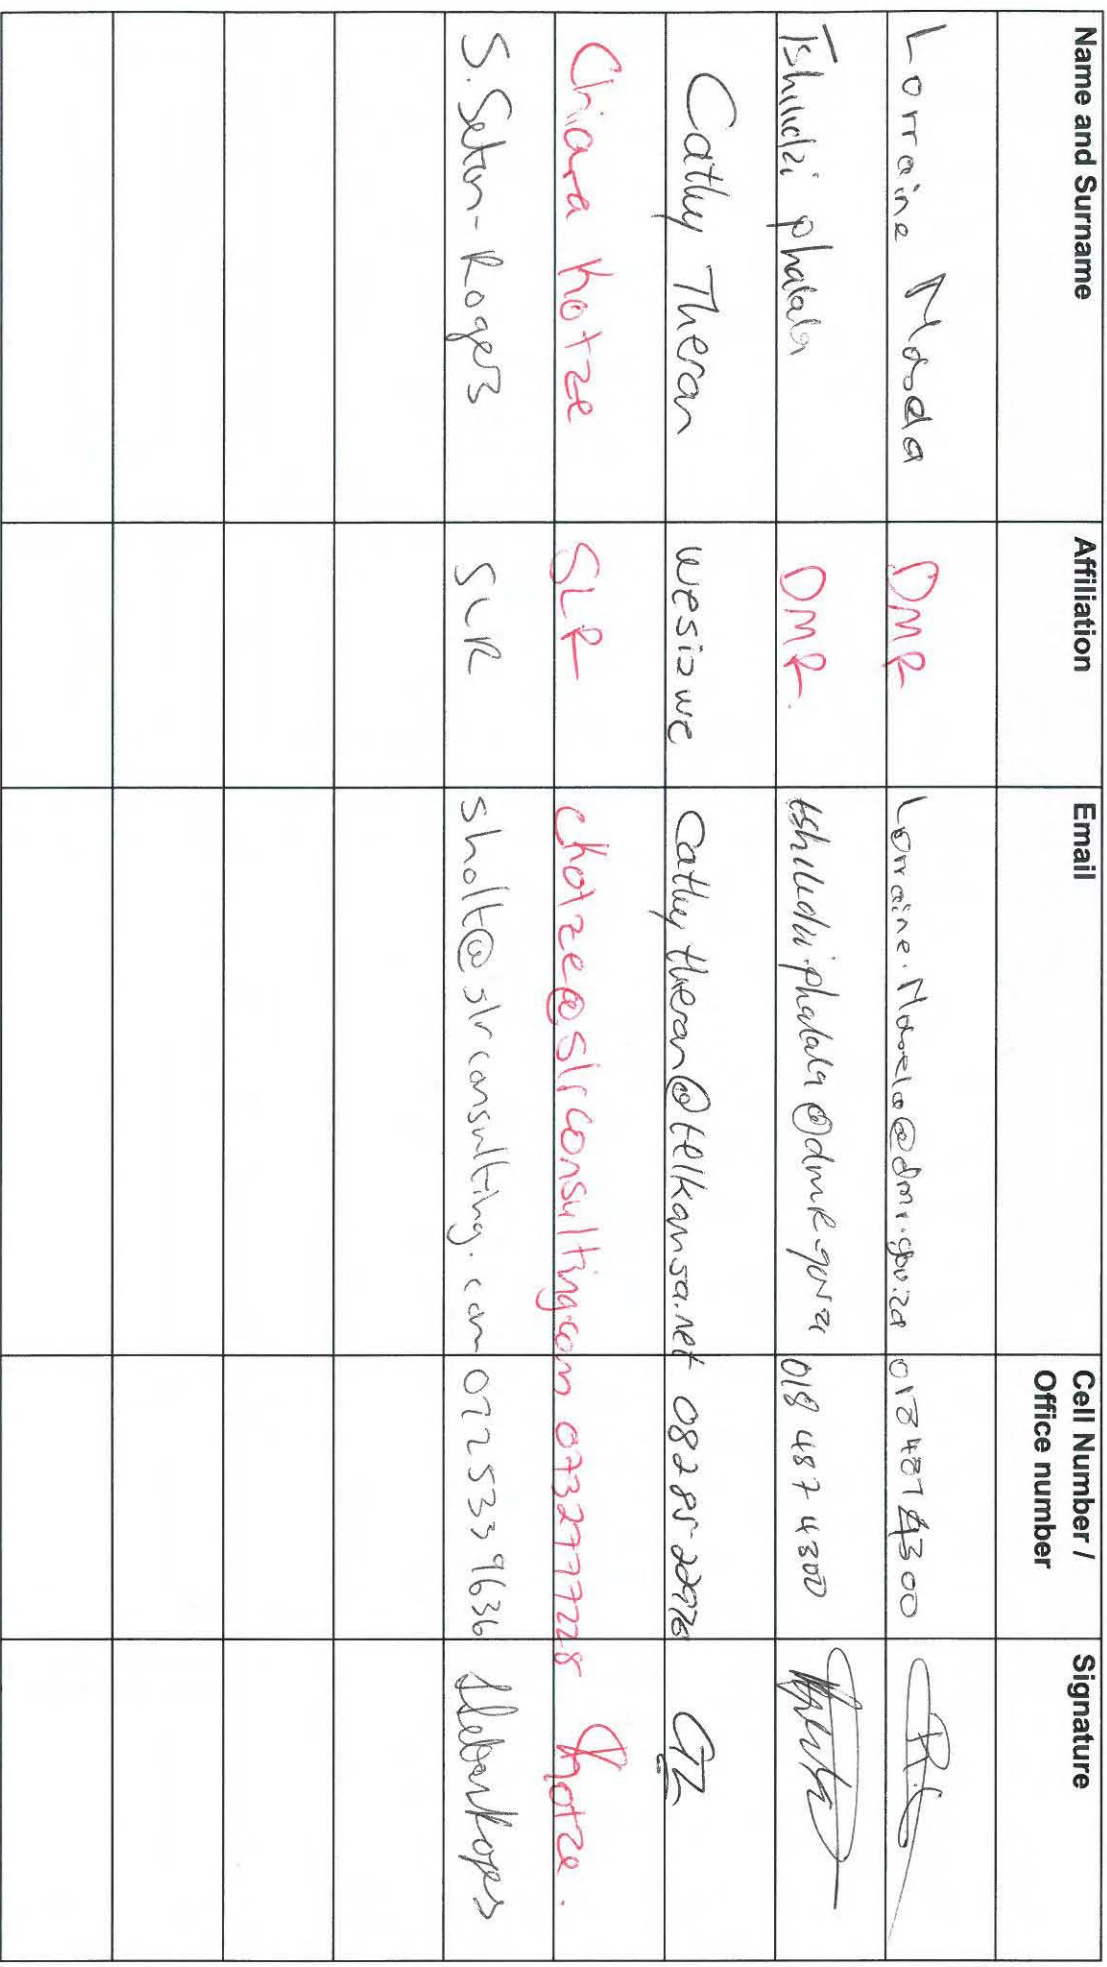 Name and Surname Affiliation Email Cell Number / Office number Signature
Lorraine DMR 4300
Tshilidzi phalala DMR. tshilidzi.phalala@dmR.gov.za 018 487 4300
Cathy Theron wesizwe cathytheron@telkomsa.net
Chiara Kotze SLR chotze@slrconsulting.com 0732777728 Ckotze.
S. Seton-Rogers SLR sholt@slrconsulting.com 0725339636